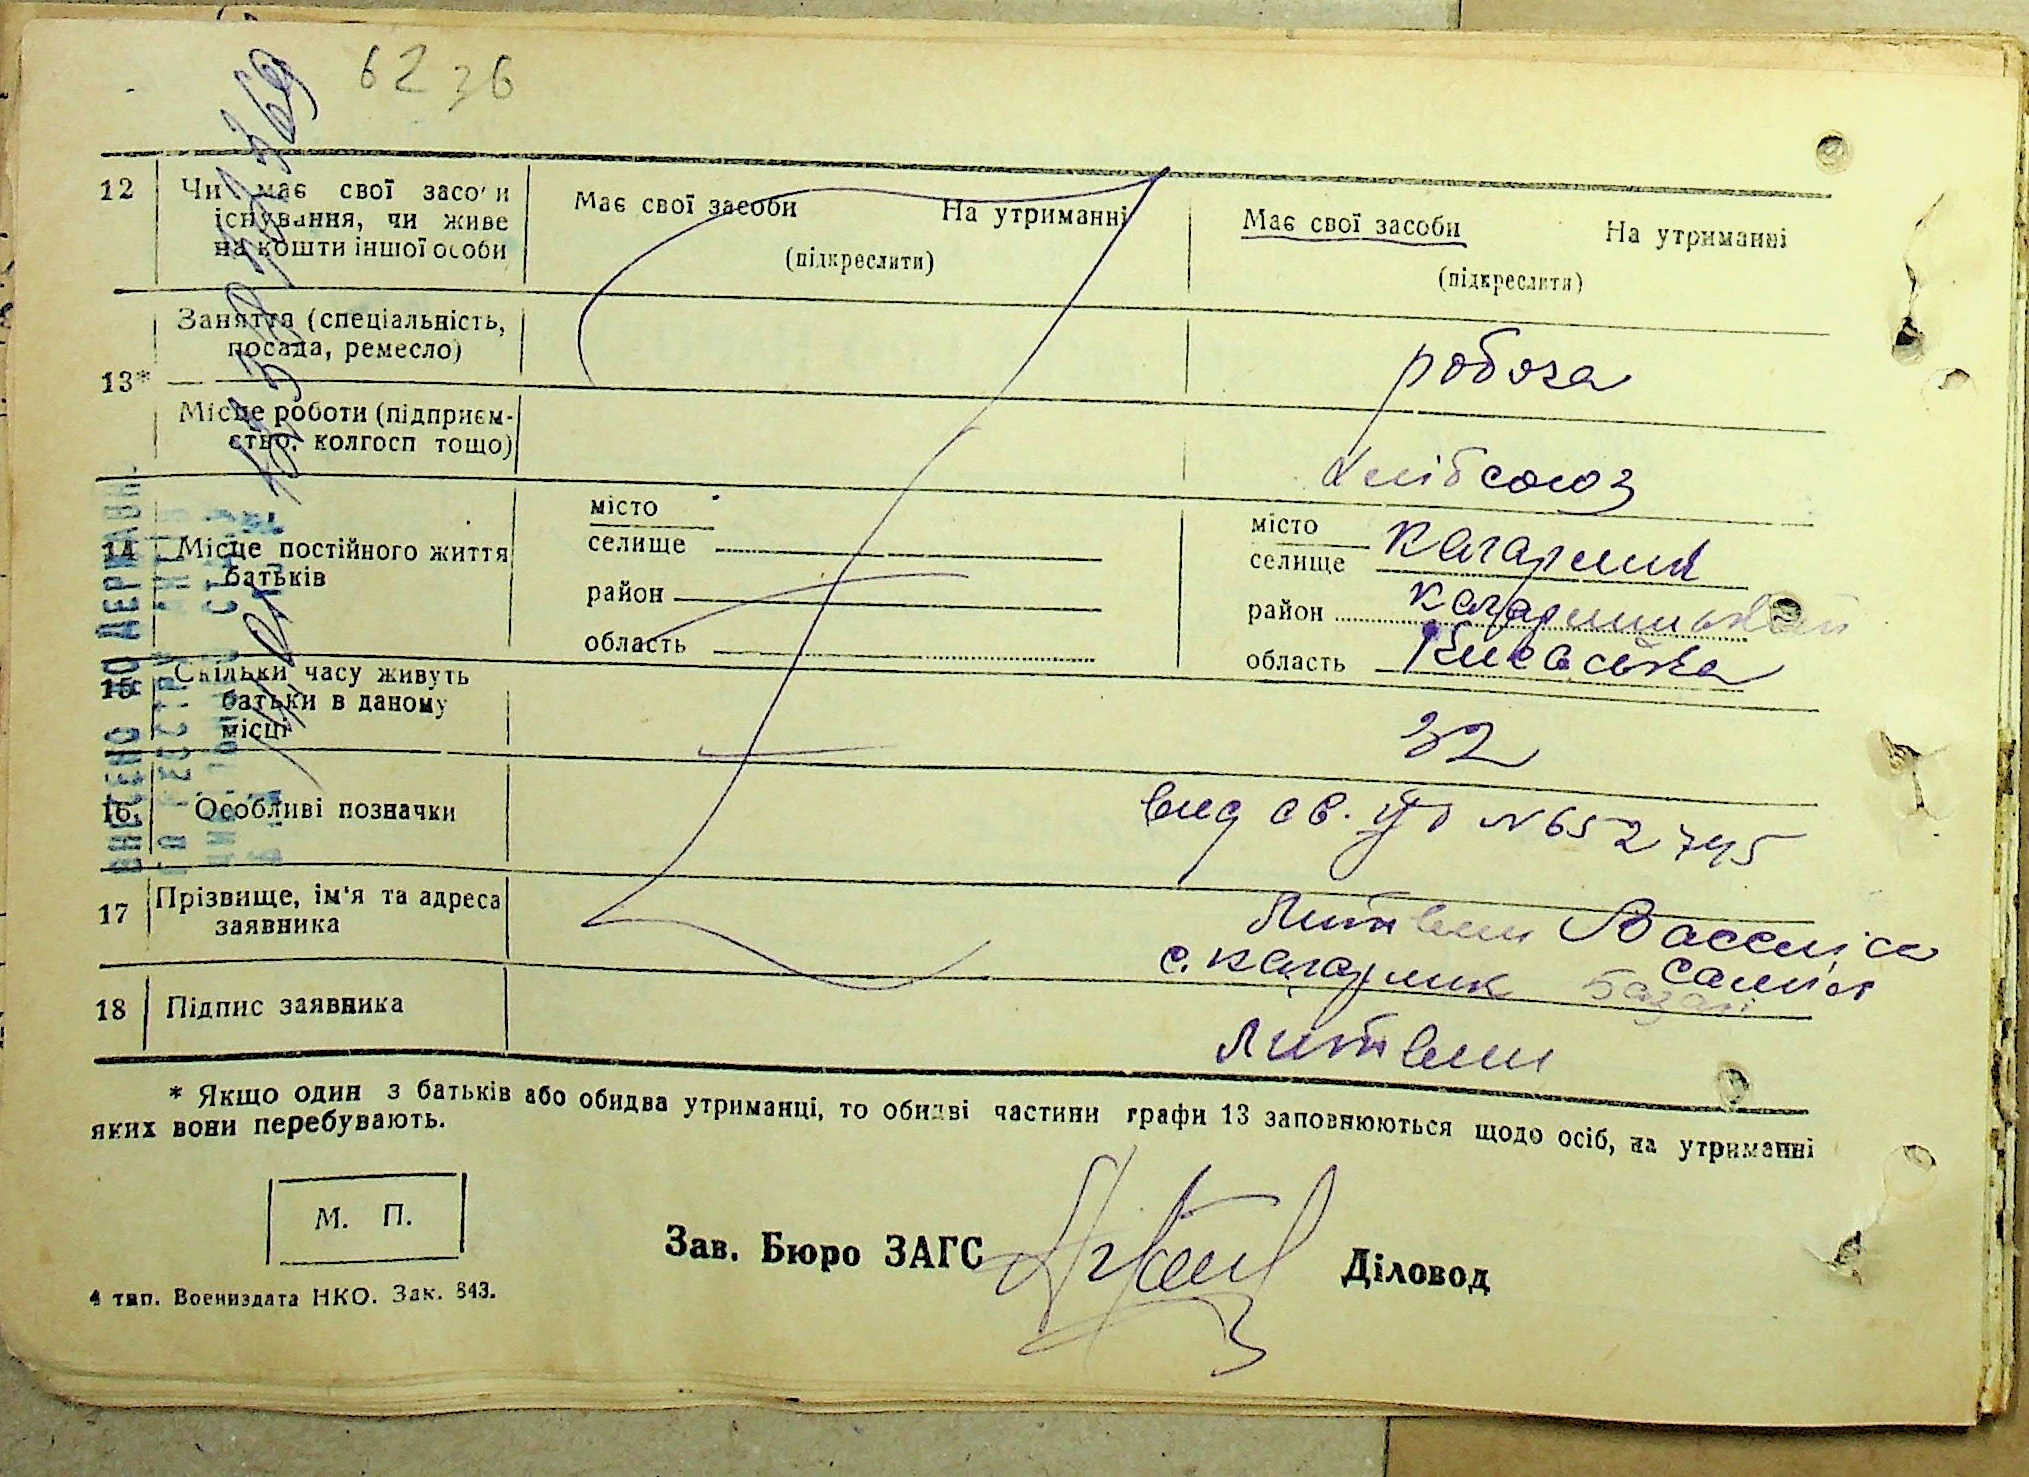 6236
12 Чи має свої засоби Має свої засоби На утриманні Має свої засоби На утриманні
існування, чи живе
на кошти іншої особи (підкреслити) (підкреслити)
Заняття (спеціальність,
посада, ремесло) робоча
13*
Місце роботи (підприєм-
ство, колгосп тощо) Хлібсоюз
14 Місце постійного життя
батьків
місто
селище
район
область
місто
селище Кагарлик
район Кагарлицький
область Київська
15 Скільки часу живуть
батьки в даному
місці 32
16. Особливі позначки вид св. N 652745
17 Прізвище, ім'я та адреса
заявника Литвин
с. Кагарлик
18 Підпис заявника Литвин
* Якщо один з батьків або обидва утриманці, то обидві частини графи 13 заповнюються щодо осіб, на утриманні
яких вони перебувають.
М. П.
Зав. Бюро ЗАГС Діловод
4 тип. Воениздата НКО. Зак. 843.
ВНЕСЕНО ДО ДЕРЖАВН